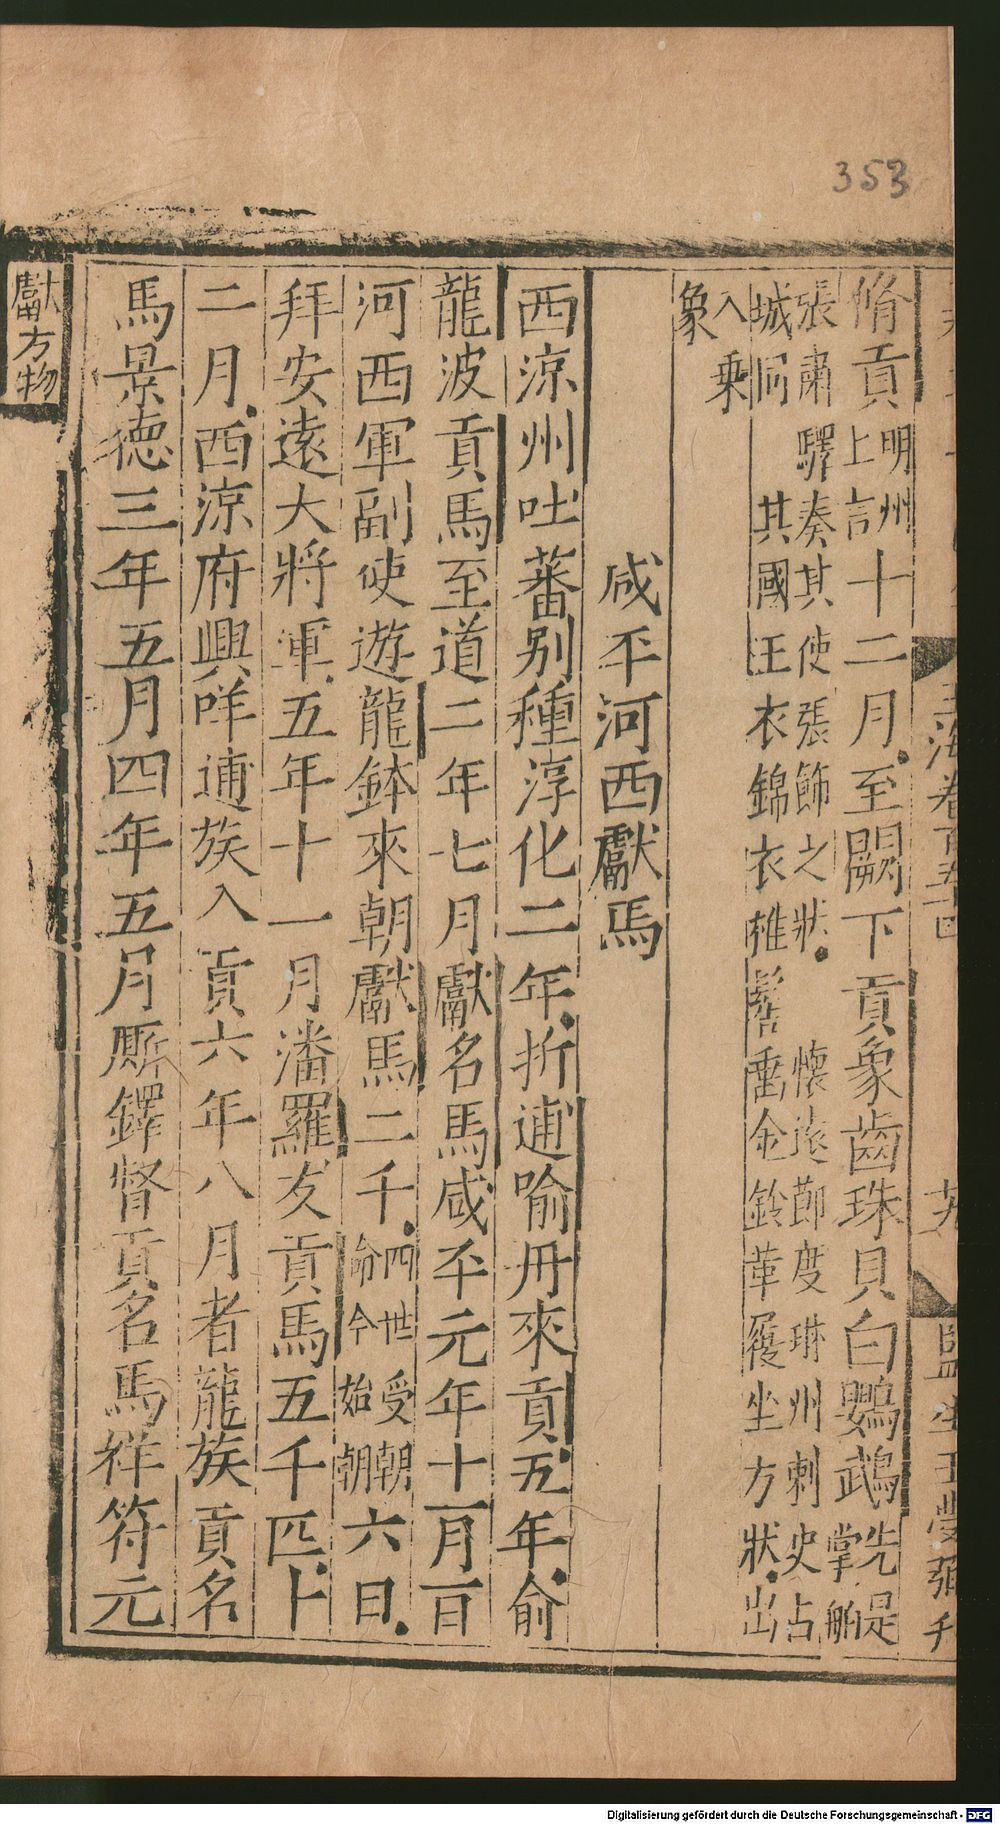 353
玉海卷百五十四
脩貢明州上言十二月至闕下貢象齒珠貝白鸚鵡先是掌舶
張肅驛奏其使張飾之狀懷遠郎度琳州刺史占
城同其國王衣錦衣椎髻垂金鈴革履坐方狀出
入乘
象
咸平河西獻馬
西涼州吐蕃别種淳化二年折逋喻丹來貢五年俞
龍波貢馬至道二年七月獻名馬咸平元年十一月百
河西軍副使遊龍鉢來朝獻馬二千四世受朝命今始朝六日
拜安遠大將軍五年十一月潘羅友貢馬五千匹十
二月西涼府興咩逋族入貢六年八月者龍族貢名
馬景德三年五月四年五月厮鐸督貢名馬祥符元
獻方物
Digitalisierung gefördert durch die Deutsche Forschungsgemeinschaft - DFG